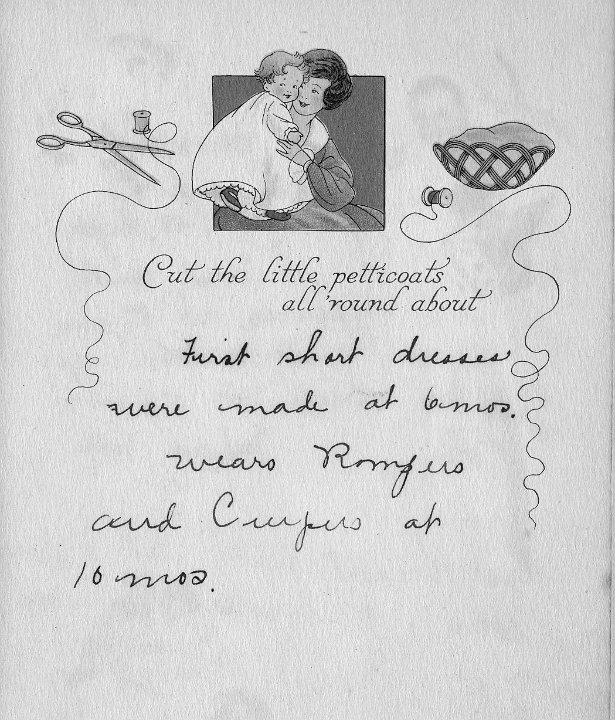 Cut the little petticoats
all 'round about
First short dresses
were made at 6 mos.
wears Rompers
and Creepers at
10 mos.